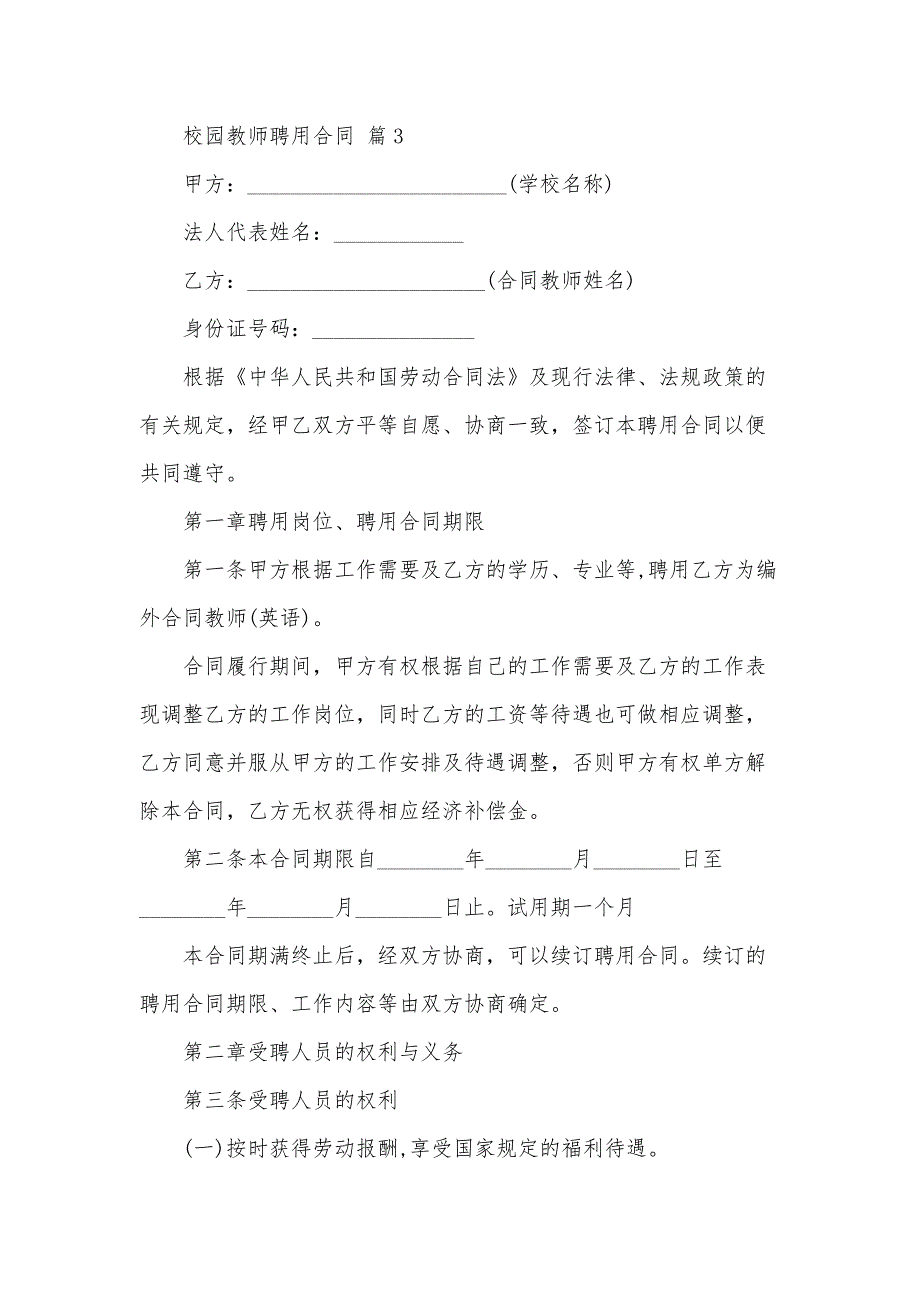 校园教师聘用合同 篇3
甲方：________________________(学校名称)
法人代表姓名：____________
乙方：______________________(合同教师姓名)
身份证号码：_______________
根据《中华人民共和国劳动合同法》及现行法律、法规政策的
有关规定，经甲乙双方平等自愿、协商一致，签订本聘用合同以便
共同遵守。
第一章聘用岗位、聘用合同期限
第一条甲方根据工作需要及乙方的学历、专业等,聘用乙方为编
外合同教师(英语)。
合同履行期间，甲方有权根据自己的工作需要及乙方的工作表
现调整乙方的工作岗位，同时乙方的工资等待遇也可做相应调整，
乙方同意并服从甲方的工作安排及待遇调整，否则甲方有权单方解
除本合同，乙方无权获得相应经济补偿金。
第二条本合同期限自________年________月________日至
________年________月________日止。试用期一个月
本合同期满终止后，经双方协商，可以续订聘用合同。续订的
聘用合同期限、工作内容等由双方协商确定。
第二章受聘人员的权利与义务
第三条受聘人员的权利
(一)按时获得劳动报酬,享受国家规定的福利待遇。